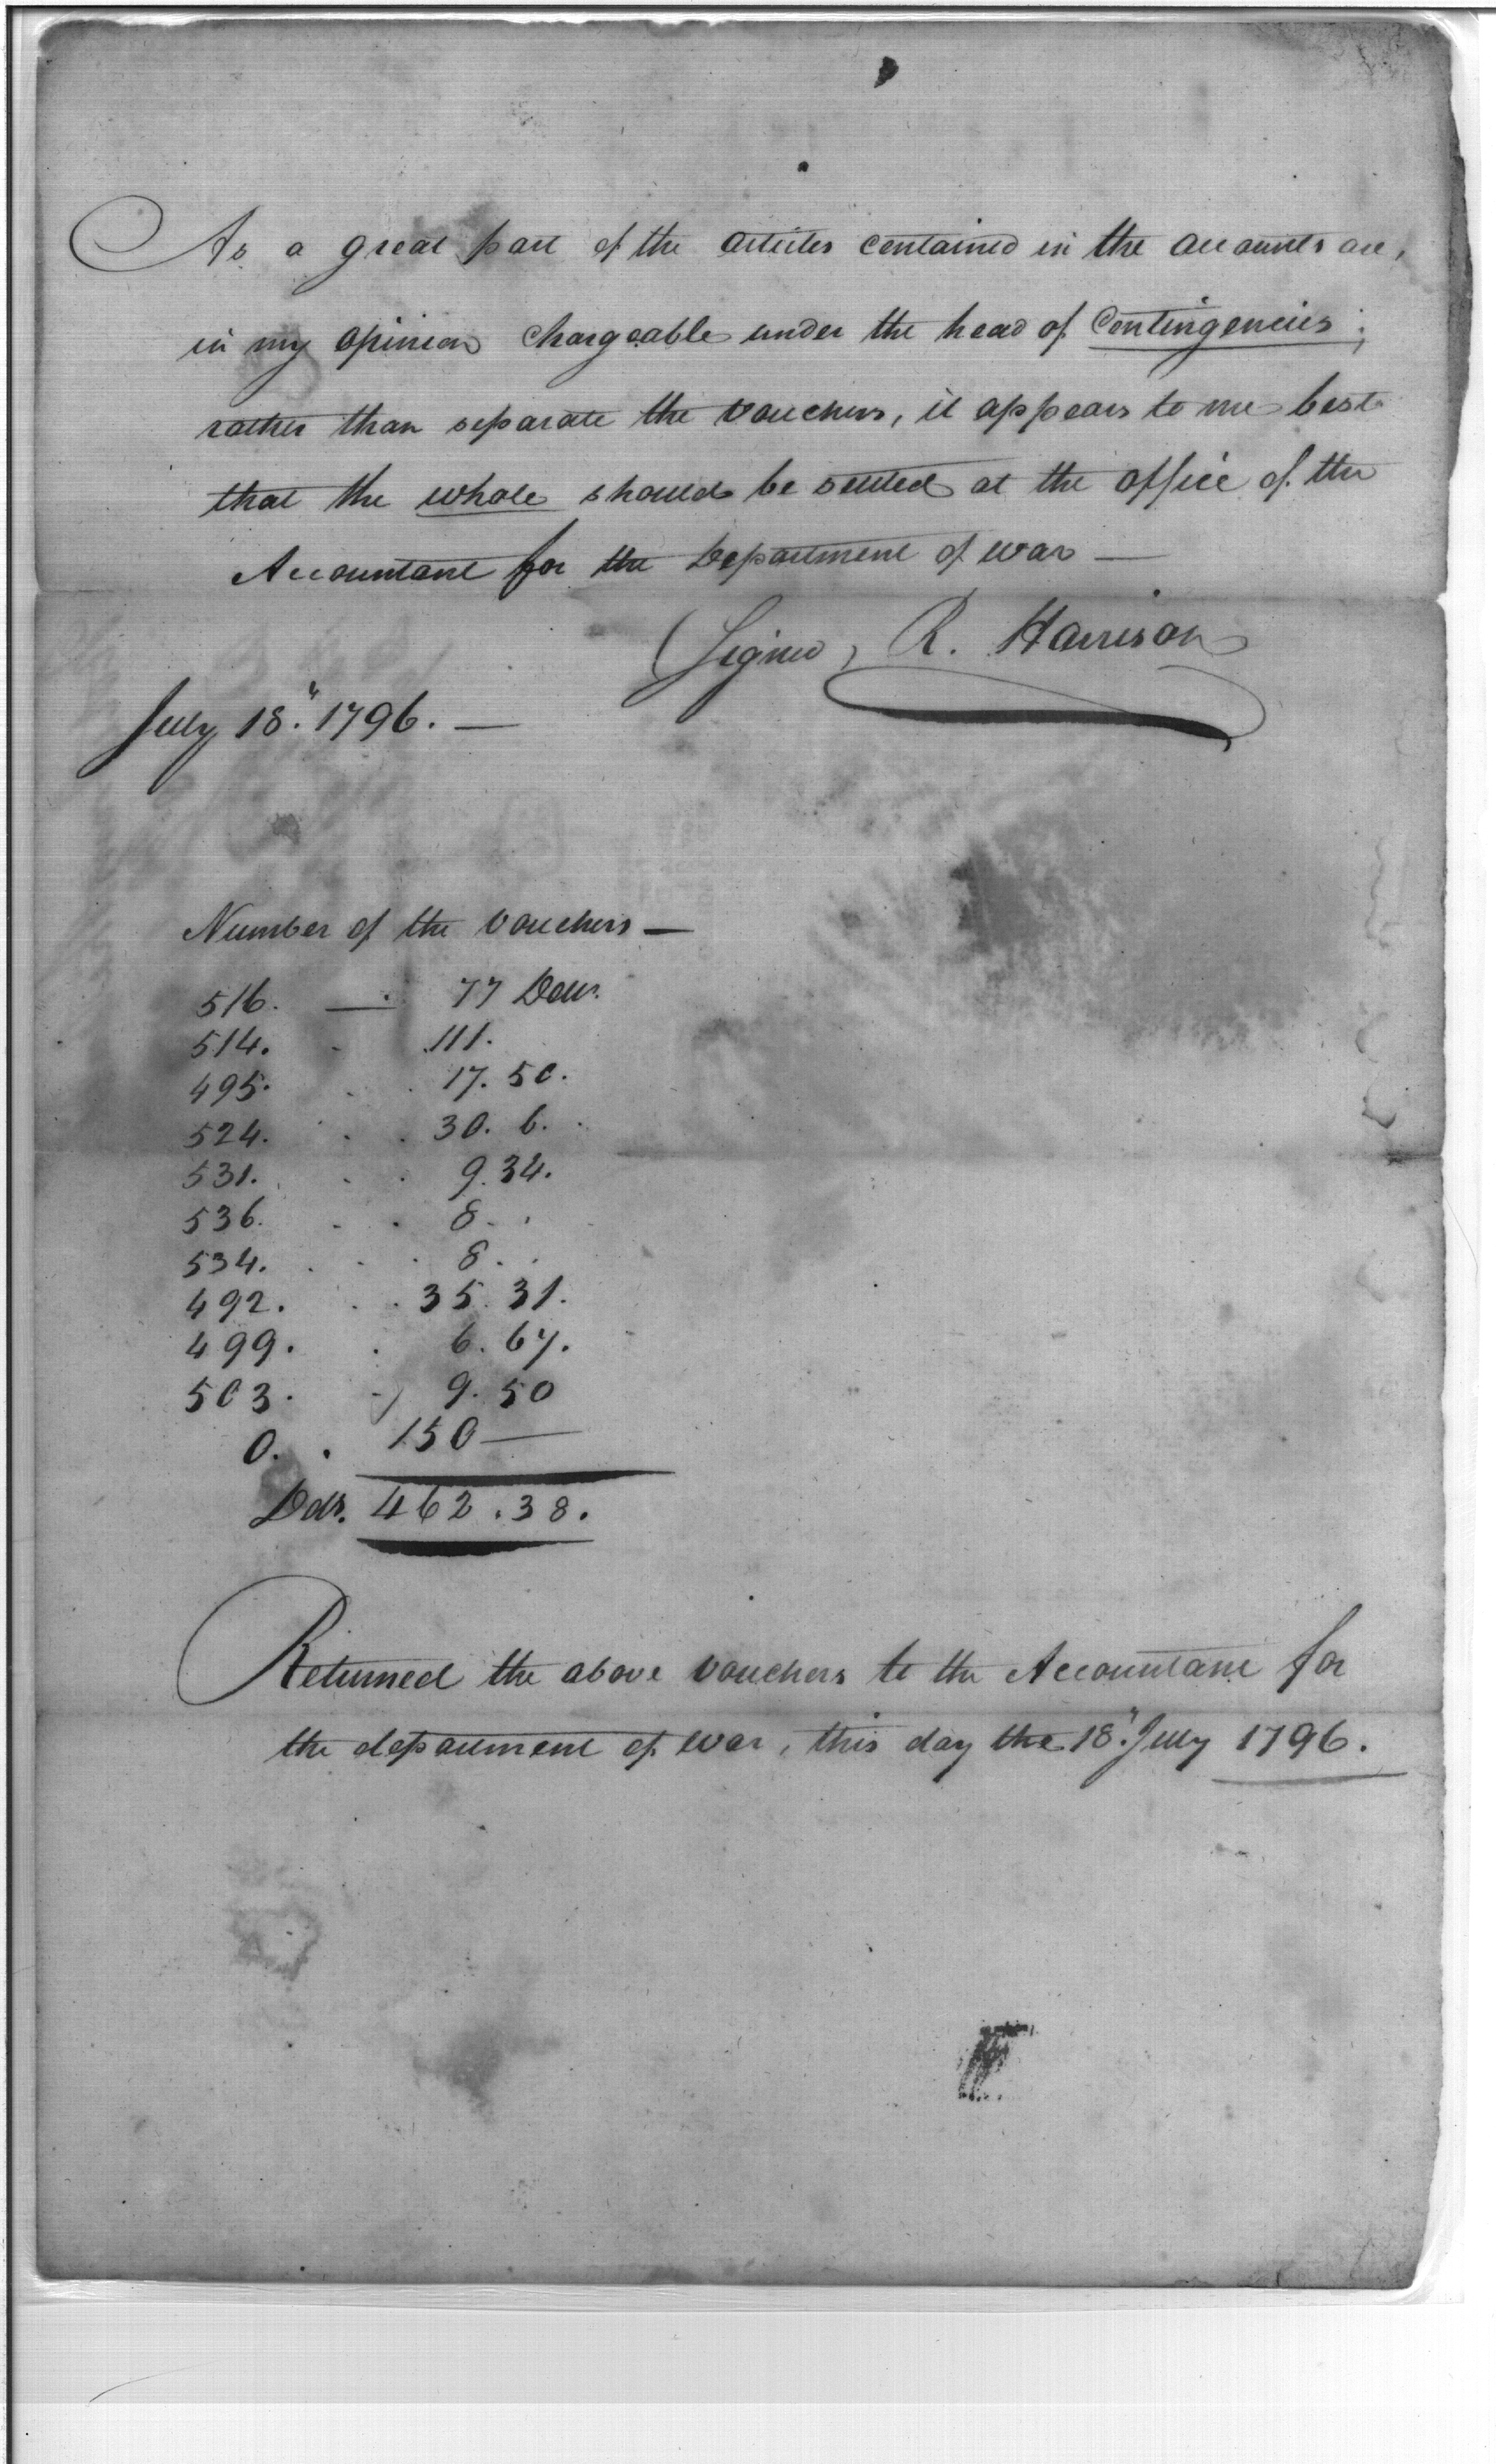 As a great part of the articles contained in the accounts are,
in my opinion chargeable under the head of Contingencies;
rather than separate the vouchers, it appears to me best
that the whole should be settled at the office of the
Accountant for the Department of war —
(Signed, R. Harrison
July 18." 1796. —
Number of the vouchers —
516. — . 77 Dolls.
514. . 111.
495. . . 17. 50.
524. . . 30. 6. .
531. . . 9. 34.
536. . . 8. .
534. . . . 8. .
492. . . 35. 31.
499. . 6. 67.
503. . 9. 50
0. . 150 —
Dolls. 462. 38.
Returned the above vouchers to the Accountant for
the department of war, this day the 18." July 1796.